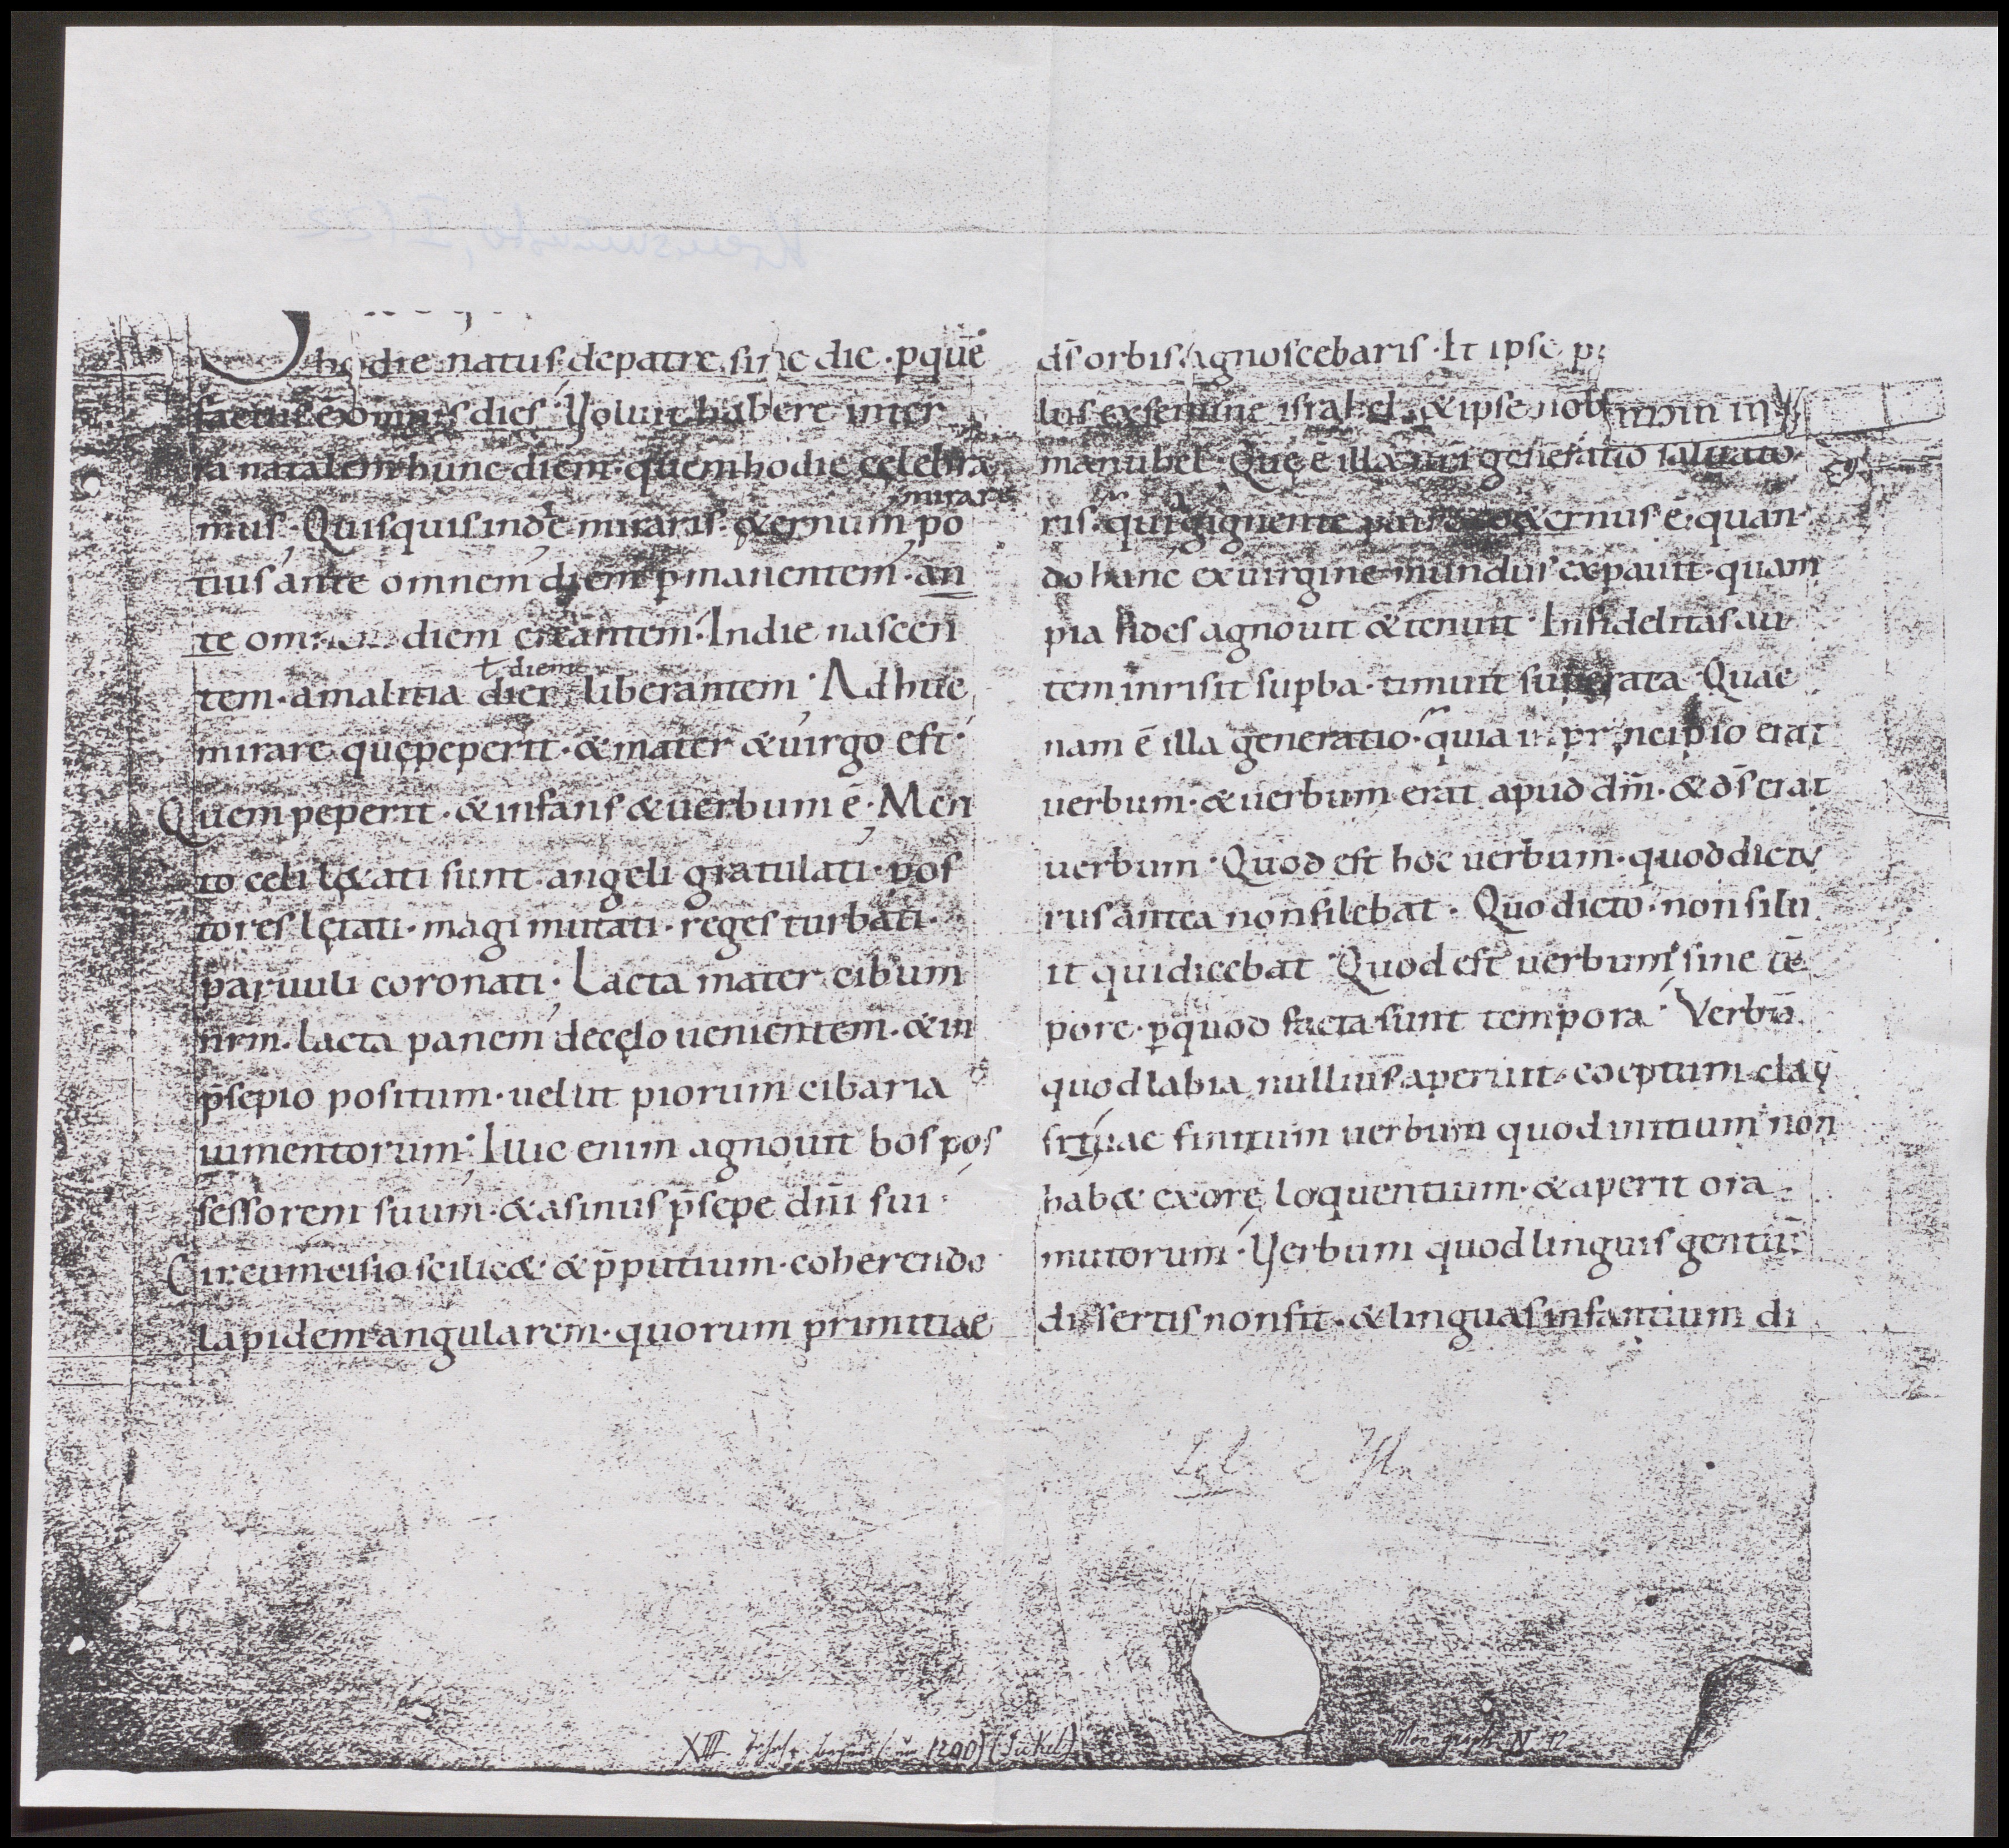 hodie natus de patre sine die · p quē
factus ē omnis dies · Voluit habere inter
ra natalem hunc diem · quem hodie celebra
mirare
mus · Quisquis inde miraris · &ernum po
tius ante omnem diem pmanentem · an
te omnem diem creantem · In die nascen
ł diem
tem · amalitia dier liberantem · Adhuc
mirare quę peperit · & mater & uirgo est ·
Quem peperit · & infans & uerbum ē · Meri
to cęli locati sunt · angeli gratulati · pas
tores lętati · magi mutati · reges turbati ·
paruuli coronati · Lacta mater cibum
nrm · lacta panem de cęlo uenientem · & in
p̄sepio positum · uelut piorum cibaria
iumentorum · Illic enim agnouit bos pos
sessorem suum · & asinus p̄sepe dn̄i sui ·
Circumcisio scilic& · & p̄putium · coherendo
lapidem angularem · quorum primitiae
ds̄ orbis agnoscebaris · Et ipse
lus ex semine israhel · & ipse nob
manuhel · Quę ē illa nr̄i generatio saluato
ris · qui gignente patre co&ernus ē · quan
do hanc ex uirgine mundus expauit · quam
pia fides agnouit & tenuit · Infidelitas au
tem inrisit supba · timuit superata · Quae
nam ē illa generatio · quia in principio erat
uerbum · & uerbum erat apud dm̄ · & ds̄ erat
uerbum · Quod est hoc uerbum · quod dictu
rus antea non silebat · Quo dicto · non silu
it qui dicebat · Quod est uerbum sine tē
pore · p quod facta sunt tempora · Verbū
quod labia nullius aperuit · coeptum clau
sitque finitum uerbum quod initium non
hab& ex ore loquentium · & aperit ora
mutorum · Verbum quod linguis gentiū
dissertis non fit · & linguas infantium di
XIII (um 1200) (Sickel)